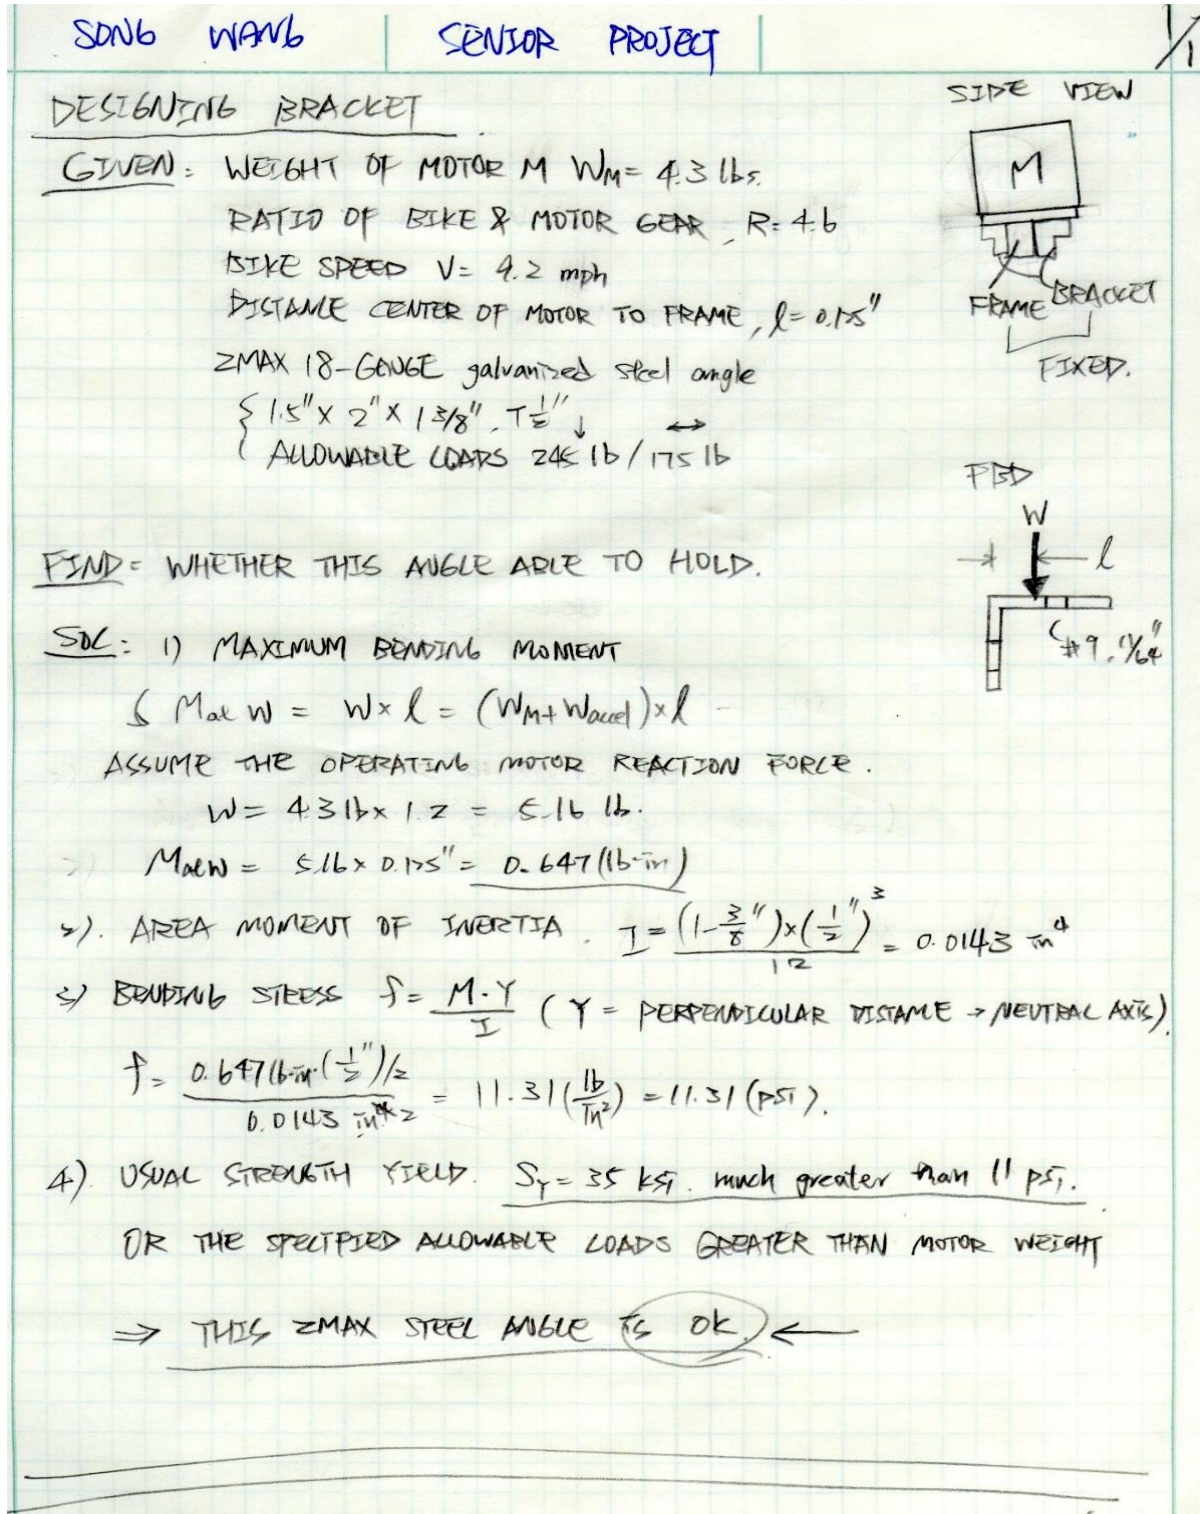 SONG WANG SENIOR PROJECT 1/1
DESIGNING BRACKET
SIDE VIEW
GIVEN: WEIGHT OF MOTOR M WM = 4.3 lbs.
M
RATIO OF BIKE & MOTOR GEAR, R = 4.6
BIKE SPEED V = 9.2 mph
DISTANCE CENTER OF MOTOR TO FRAME, l = 0.125"
FRAME BRACKET
ZMAX 18-GAUGE galvanized steel angle
FIXED.
{ 1.5" X 2" X 1 3/8", T 1/2" ↓ ↔
ALLOWABLE LOADS 245 lb / 175 lb
FBD
W
FIND = WHETHER THIS ANGLE ABLE TO HOLD.
l
SOL: 1) MAXIMUM BENDING MOMENT
#9, 11/64"
M at W = W x l = (WM + Waccel) x l
ASSUME THE OPERATING MOTOR REACTION FORCE.
W = 4.3 lb x 1.2 = 5.16 lb.
M at W = 5.16 x 0.125" = 0.647 (lb-in)
2). AREA MOMENT OF INERTIA. I = (1-3/8") x (1/2")³ / 12 = 0.0143 in⁴
3) BENDING STRESS f = M·Y / I (Y = PERPENDICULAR DISTANCE → NEUTRAL AXIS)
f = 0.647 lb-in·(1/2")/2 / 0.0143 in⁴ = 11.31 (lb/in²) = 11.31 (psi).
4). USUAL STRENGTH YIELD. SY = 35 ksi. much greater than 11 psi.
OR THE SPECIFIED ALLOWABLE LOADS GREATER THAN MOTOR WEIGHT
⇒ THIS ZMAX STEEL ANGLE IS OK. ←